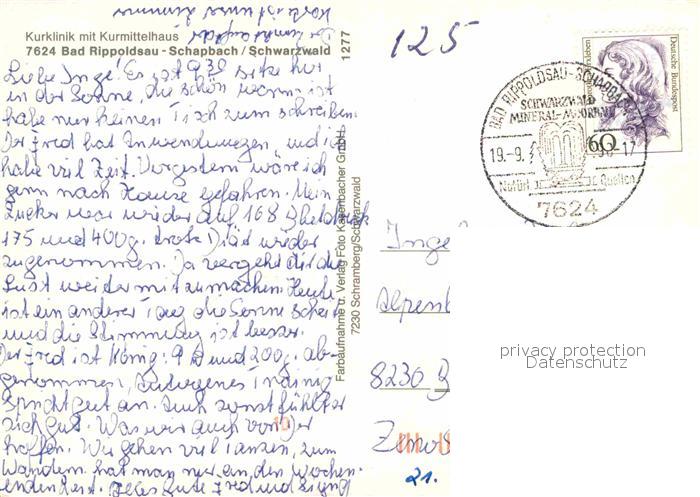 Der
Karte ist unser Zimmer
Kurklinik mit Kurmittelhaus
7624 Bad Rippoldsau - Schapbach / Schwarzwald
1277
Liebe Inge! Es ist 9 30 sitze hier
in der Sonne, die schön warm ist
habe nur keinen Tisch zum schreiben.
Der Fred hat Anwendungen, und ich
habe viel Zeit. Vorgestern wäre ich
gern nach Hause gefahren. Mein
Zucker war wieder auf 168 Blutdruck
175 und 400g. trotz Diät wieder
zugenommen. Da vergeht dir die
Lust weiter mitzumachen. Heute
ist ein anderer Tag die Sonne scheint
und die Stimmung ist besser.
Der Fred ist König: 9 und 200g. ab-
genommen, Autogenes Training
spricht gut an. Auch sonst fühlt er
sich gut. Was wir auch von Dir
hoffen. Wir gehen viel tanzen, zum
Wandern hat man nur an den Wochen-
enden Zeit. Alles Gute Fred und
Farbaufnahme u. Verlag Foto Kaltenbacher GmbH
7230 Schramberg/Schwarzwald
125
Deutsche Bundespost
60
BAD RIPPOLDSAU-SCHAPBACH
SCHWARZWALD
MINERAL-MOORBAD
19.-9.
-17
Quellen
7624
Inge
Alpen
8230 B
21.
privacy protection
Datenschutz